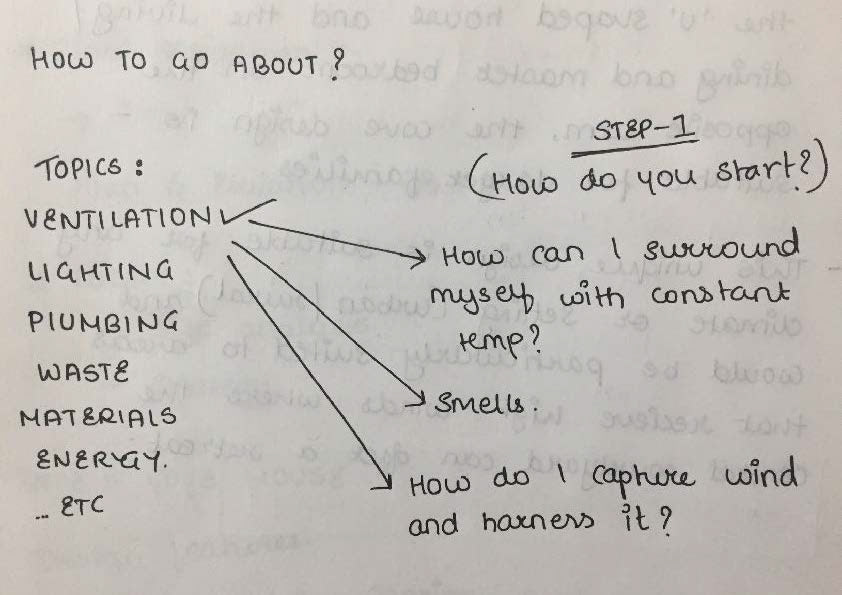 HOW TO GO ABOUT?
STEP-1
(HOW do you start?)
TOPICS:
VENTILATION
LIGHTING
PLUMBING
WASTE
MATERIALS
ENERGY.
... ETC
How can I surround
myself with constant
temp?
Smells.
How do I capture wind
and harness it?